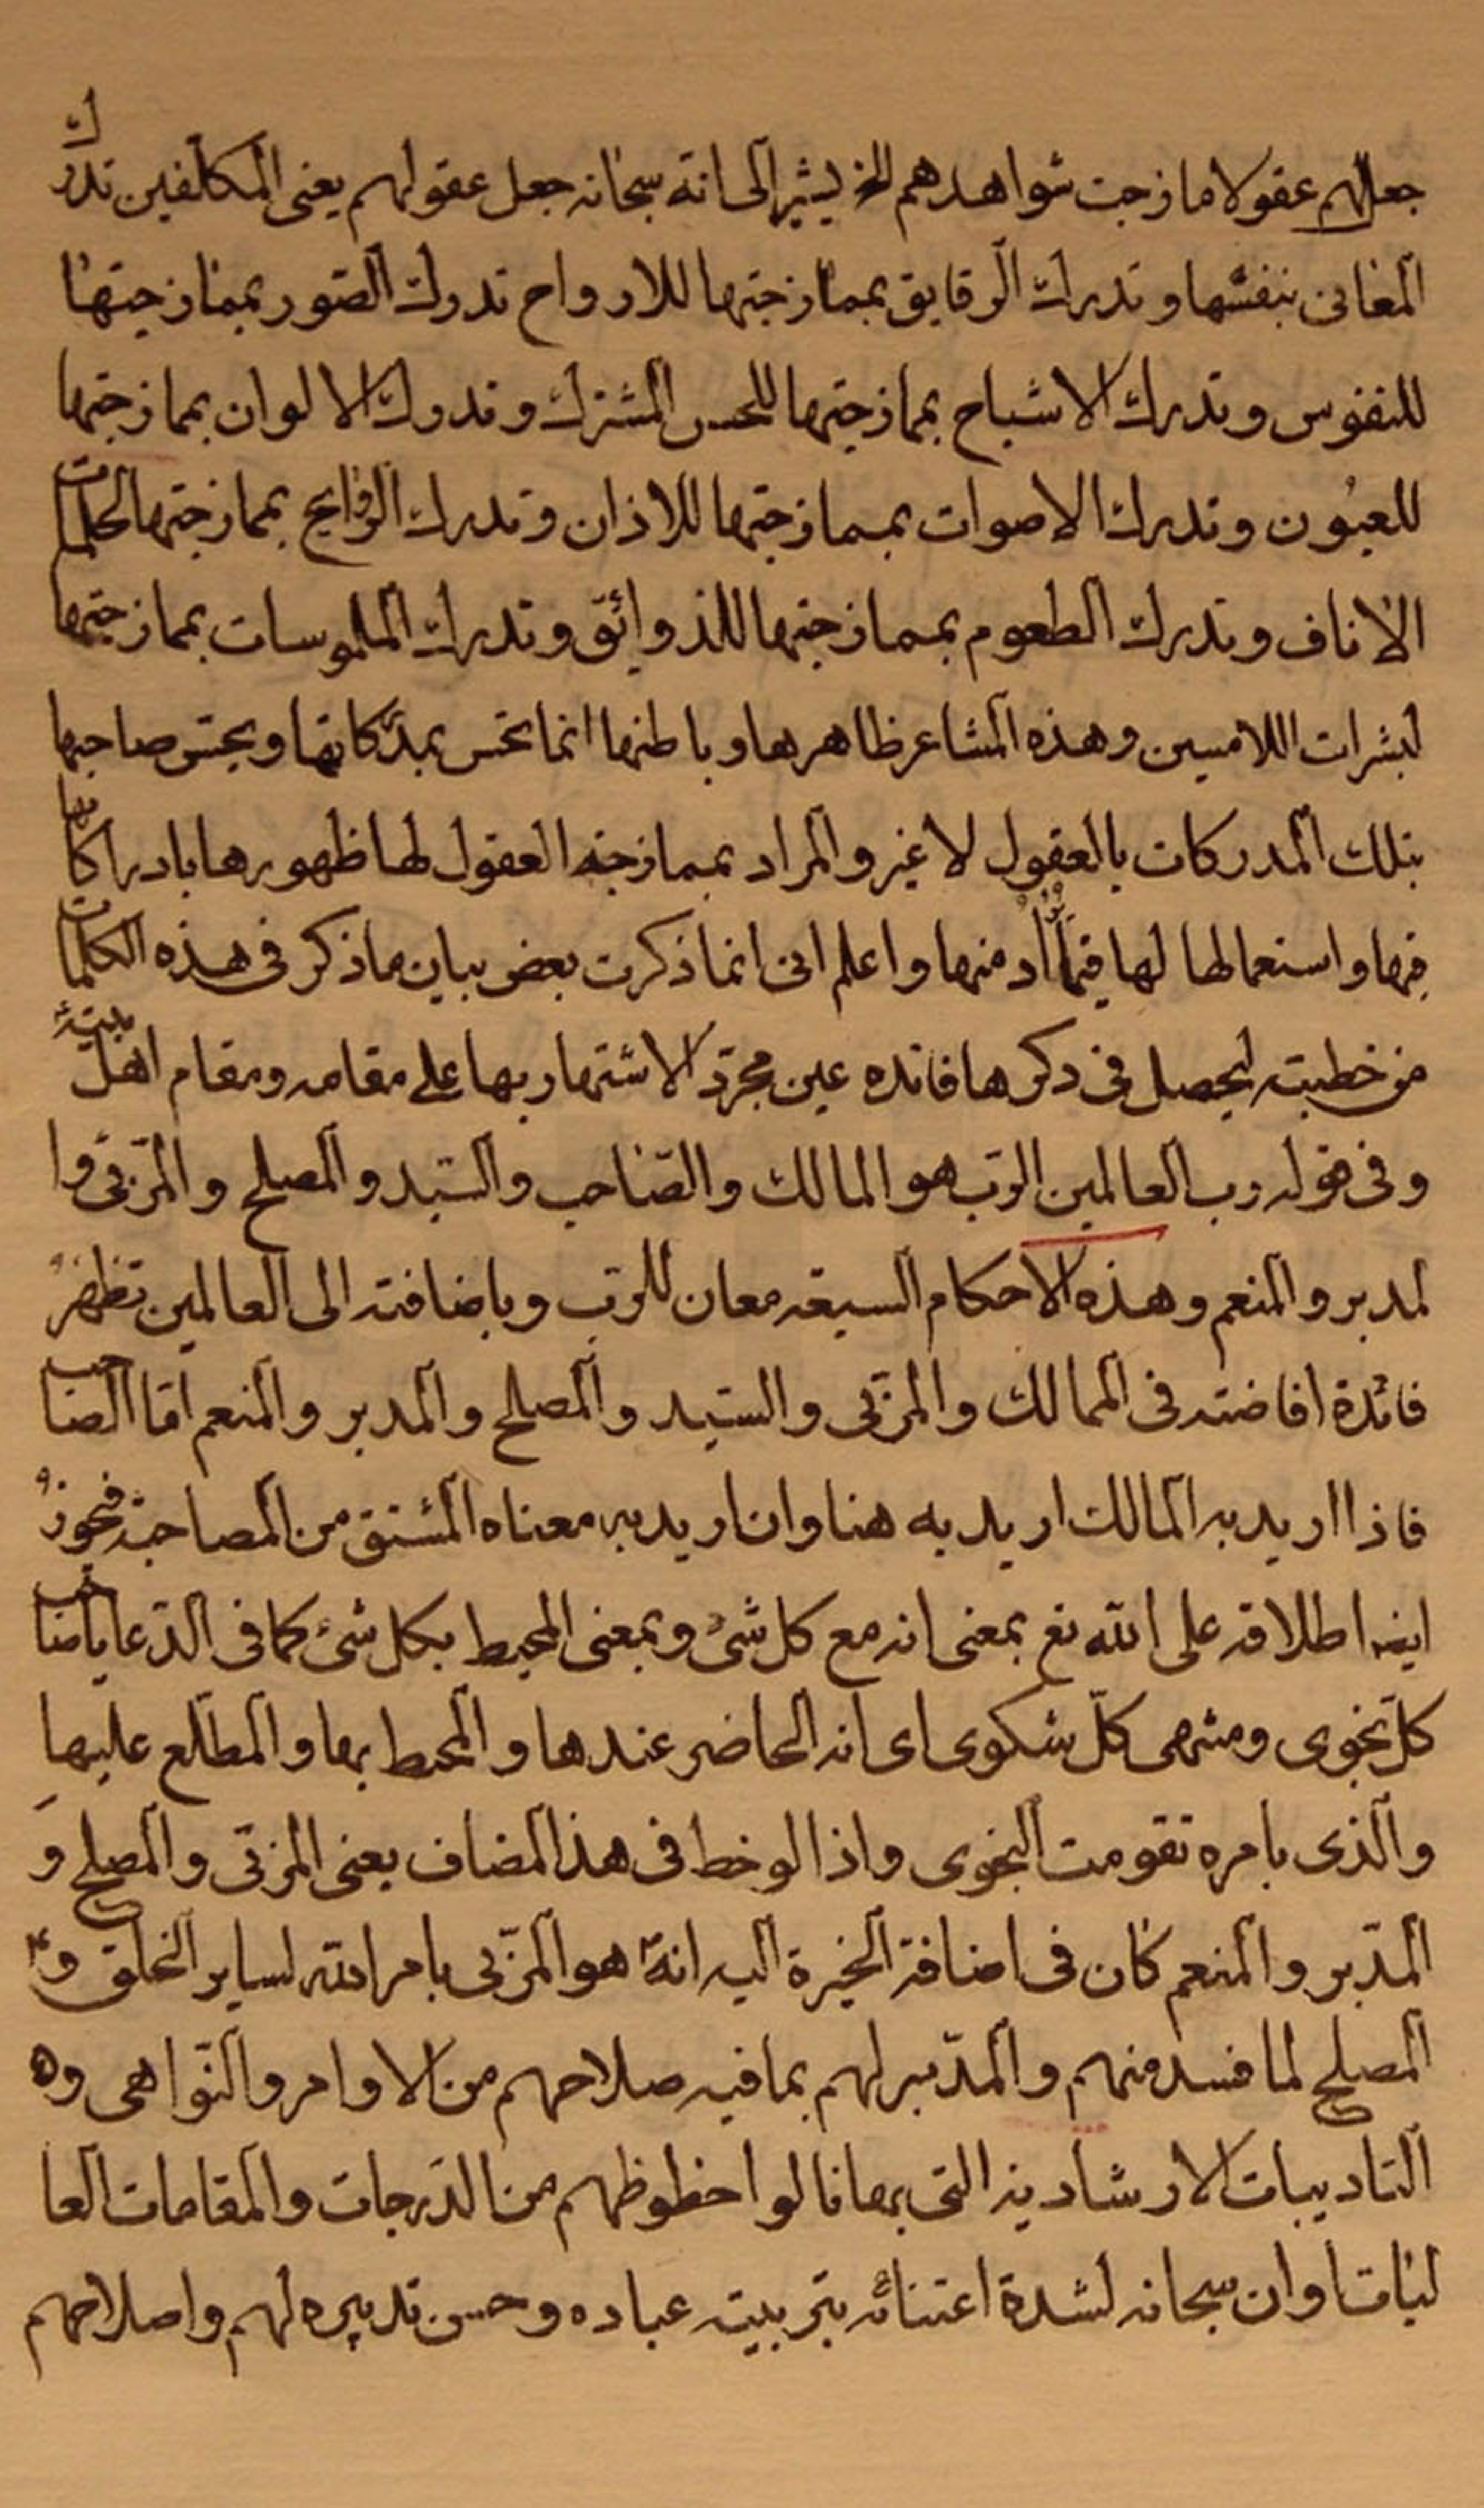 جعل لهم عقولا مازجت شواهدهم الخ يشير الى انه سبحانه جعل عقولهم يعنى المكلفين تدرك
المعانى بنفسها وتدرك الرقايق بممازجتها للارواح تدرك الصور بممازجتها
للنفوس وتدرك الاشباح بممازجتها للحس المشترك وتدرك الالوان بممازجتها
للعيون وتدرك الاصوات بممازجتها للاذان وتدرك الروايح بممازجتها لحلمات
الاناف وتدرك الطعوم بممازجتها للذوائق وتدرك الملموسات بممازجتها
لبشرات اللامسين وهذه المشاعر ظاهرها وباطنها انما تحس بمدركاتها ويحس صاحبها
بتلك المدركات بالعقول لا غير والمراد بممازجة العقول لها ظهورها بادراكاتها
فيها واستعمالها لها فيما يراد منها واعلم انى انما ذكرت بعض بيان ما ذكر فى هذه الكلمات
من خطبته ليحصل فى ذكرها فائده عين مجرد الاشتهار بها على مقامه ومقام اهل بيته
وفى قوله رب العالمين الرب هو المالك والصاحب والسيد والمصلح والمربى وا
لمدبر والمنعم وهذه الاحكام السبعة معان للرب وباضافته الى العالمين تظهر
فائدة افاضته فى الممالك والمربى والسيد والمصلح والمدبر والمنعم اما الصاحب
فاذا اريد به المالك اريد به هنا وان اريد به معناه المشتق من المصاحبة فيجوز
ايضا اطلاقه على الله تع بمعنى انه مع كل شئ وبمعنى المحيط بكل شئ كما فى الدعا يا صاحب
كل نجوى ومنتهى كل شكوى اى انه الحاضر عندها والمحيط بها والمطلع عليها
والذى بامره تقومت النجوى واذا لوخط فى هذا المضاف يعنى المربى والمصلح و
المدبر والمنعم كان فى اضافة الخيرة اليه انه هو المربى بامر الله لساير الخلق و
المصلح لما فسد منهم والمدبر لهم بما فيه صلاحهم من الاوامر والنواهى و
التاديبات الارشادية التى بها نالوا حظوظهم من الدرجات والمقامات العا
ليات وان سبحانه لشدة اعتنائه بتربيته عباده وحسن تدبيره لهم واصلاحهم